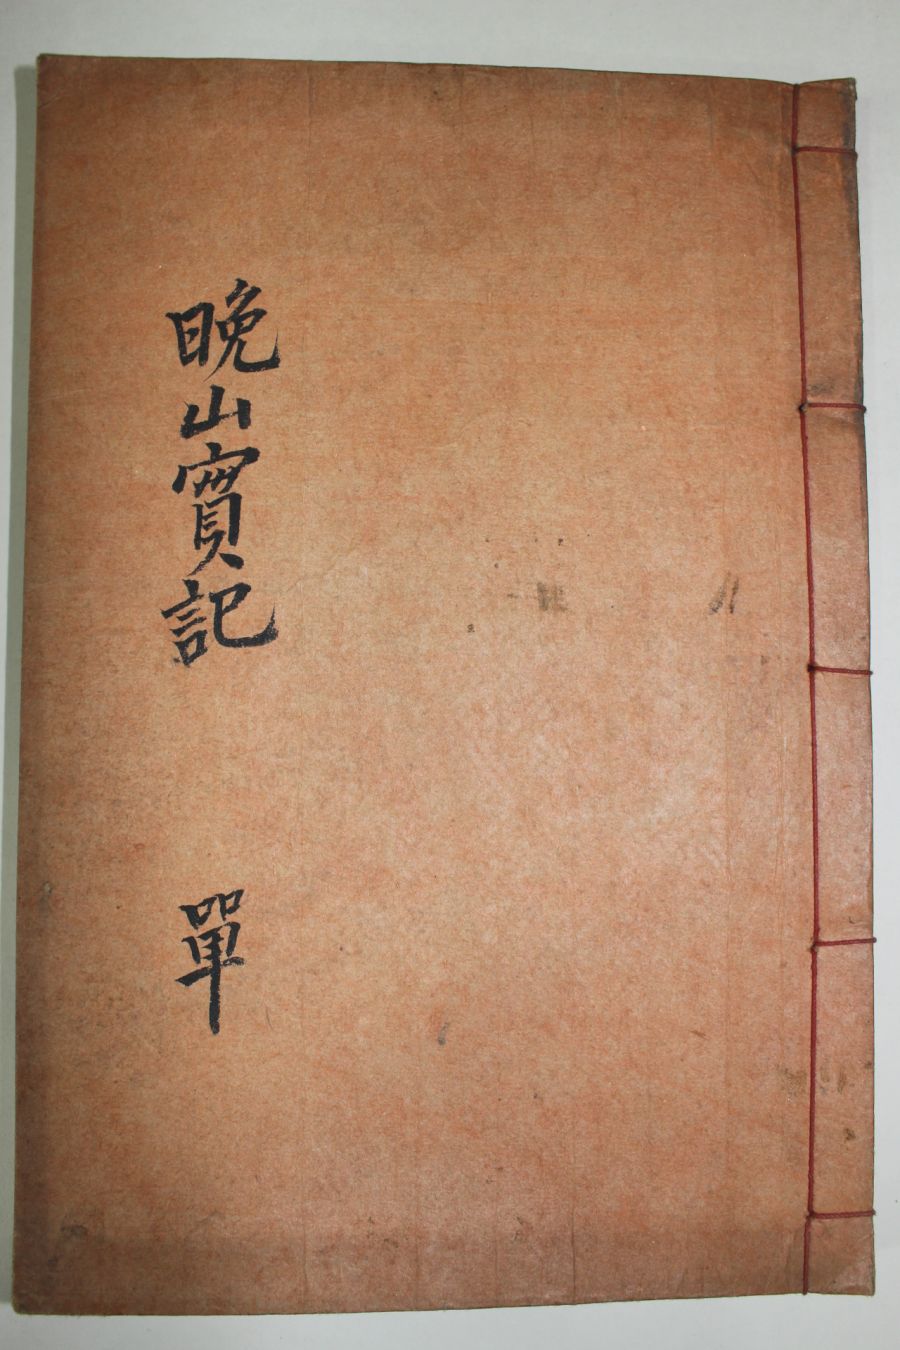 晩山實記
單